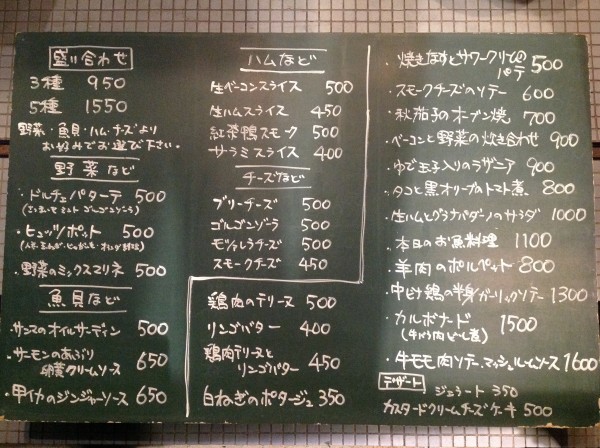 盛り合わせ
3種 950
5種 1550
野菜・魚貝・ハム・チーズより
お好みでお選び下さい。
野菜など
・ドルチェパターテ 500
(さつまいも ミルト ゴルゴンゾーラ)
・ヒュッツポット 500
・野菜のミックスマリネ 500
魚貝など
・サンマのオイルサーディン 500
・サーモンのあぶり
卵黄クリームソース 650
・甲イカのジンジャーソース 650
ハムなど
生ベーコンスライス 500
生ハムスライス 450
紅茶鴨スモーク 500
サラミスライス 400
チーズなど
ブリーチーズ 500
ゴルゴンゾーラ 500
モッツァレラチーズ 500
スモークチーズ 450
鶏肉のテリーヌ 500
リンゴバター 400
鶏肉テリーヌと
リンゴバター 450
白ねぎのポタージュ 350
・焼きなすとサワークリームの
パテ 500
・スモークチーズのソテー 600
・秋茄子のオーブン焼 700
・ベーコンと野菜の炊き合わせ 900
・ゆで玉子入りのラザニア 900
・タコと黒オリーブのトマト煮 800
・生ハムとグラナパダーノのサラダ 1000
・本日のお魚料理 1100
・羊肉のポルペット 800
・中ビナ鶏の半身ガーリックソテー 1300
・カルボナード 1500
(牛バラ肉ビール煮)
・牛モモ肉ソテー、マッシュルームソース 1600
デザート
ジェラート 350
カスタードクリームチーズケーキ 500